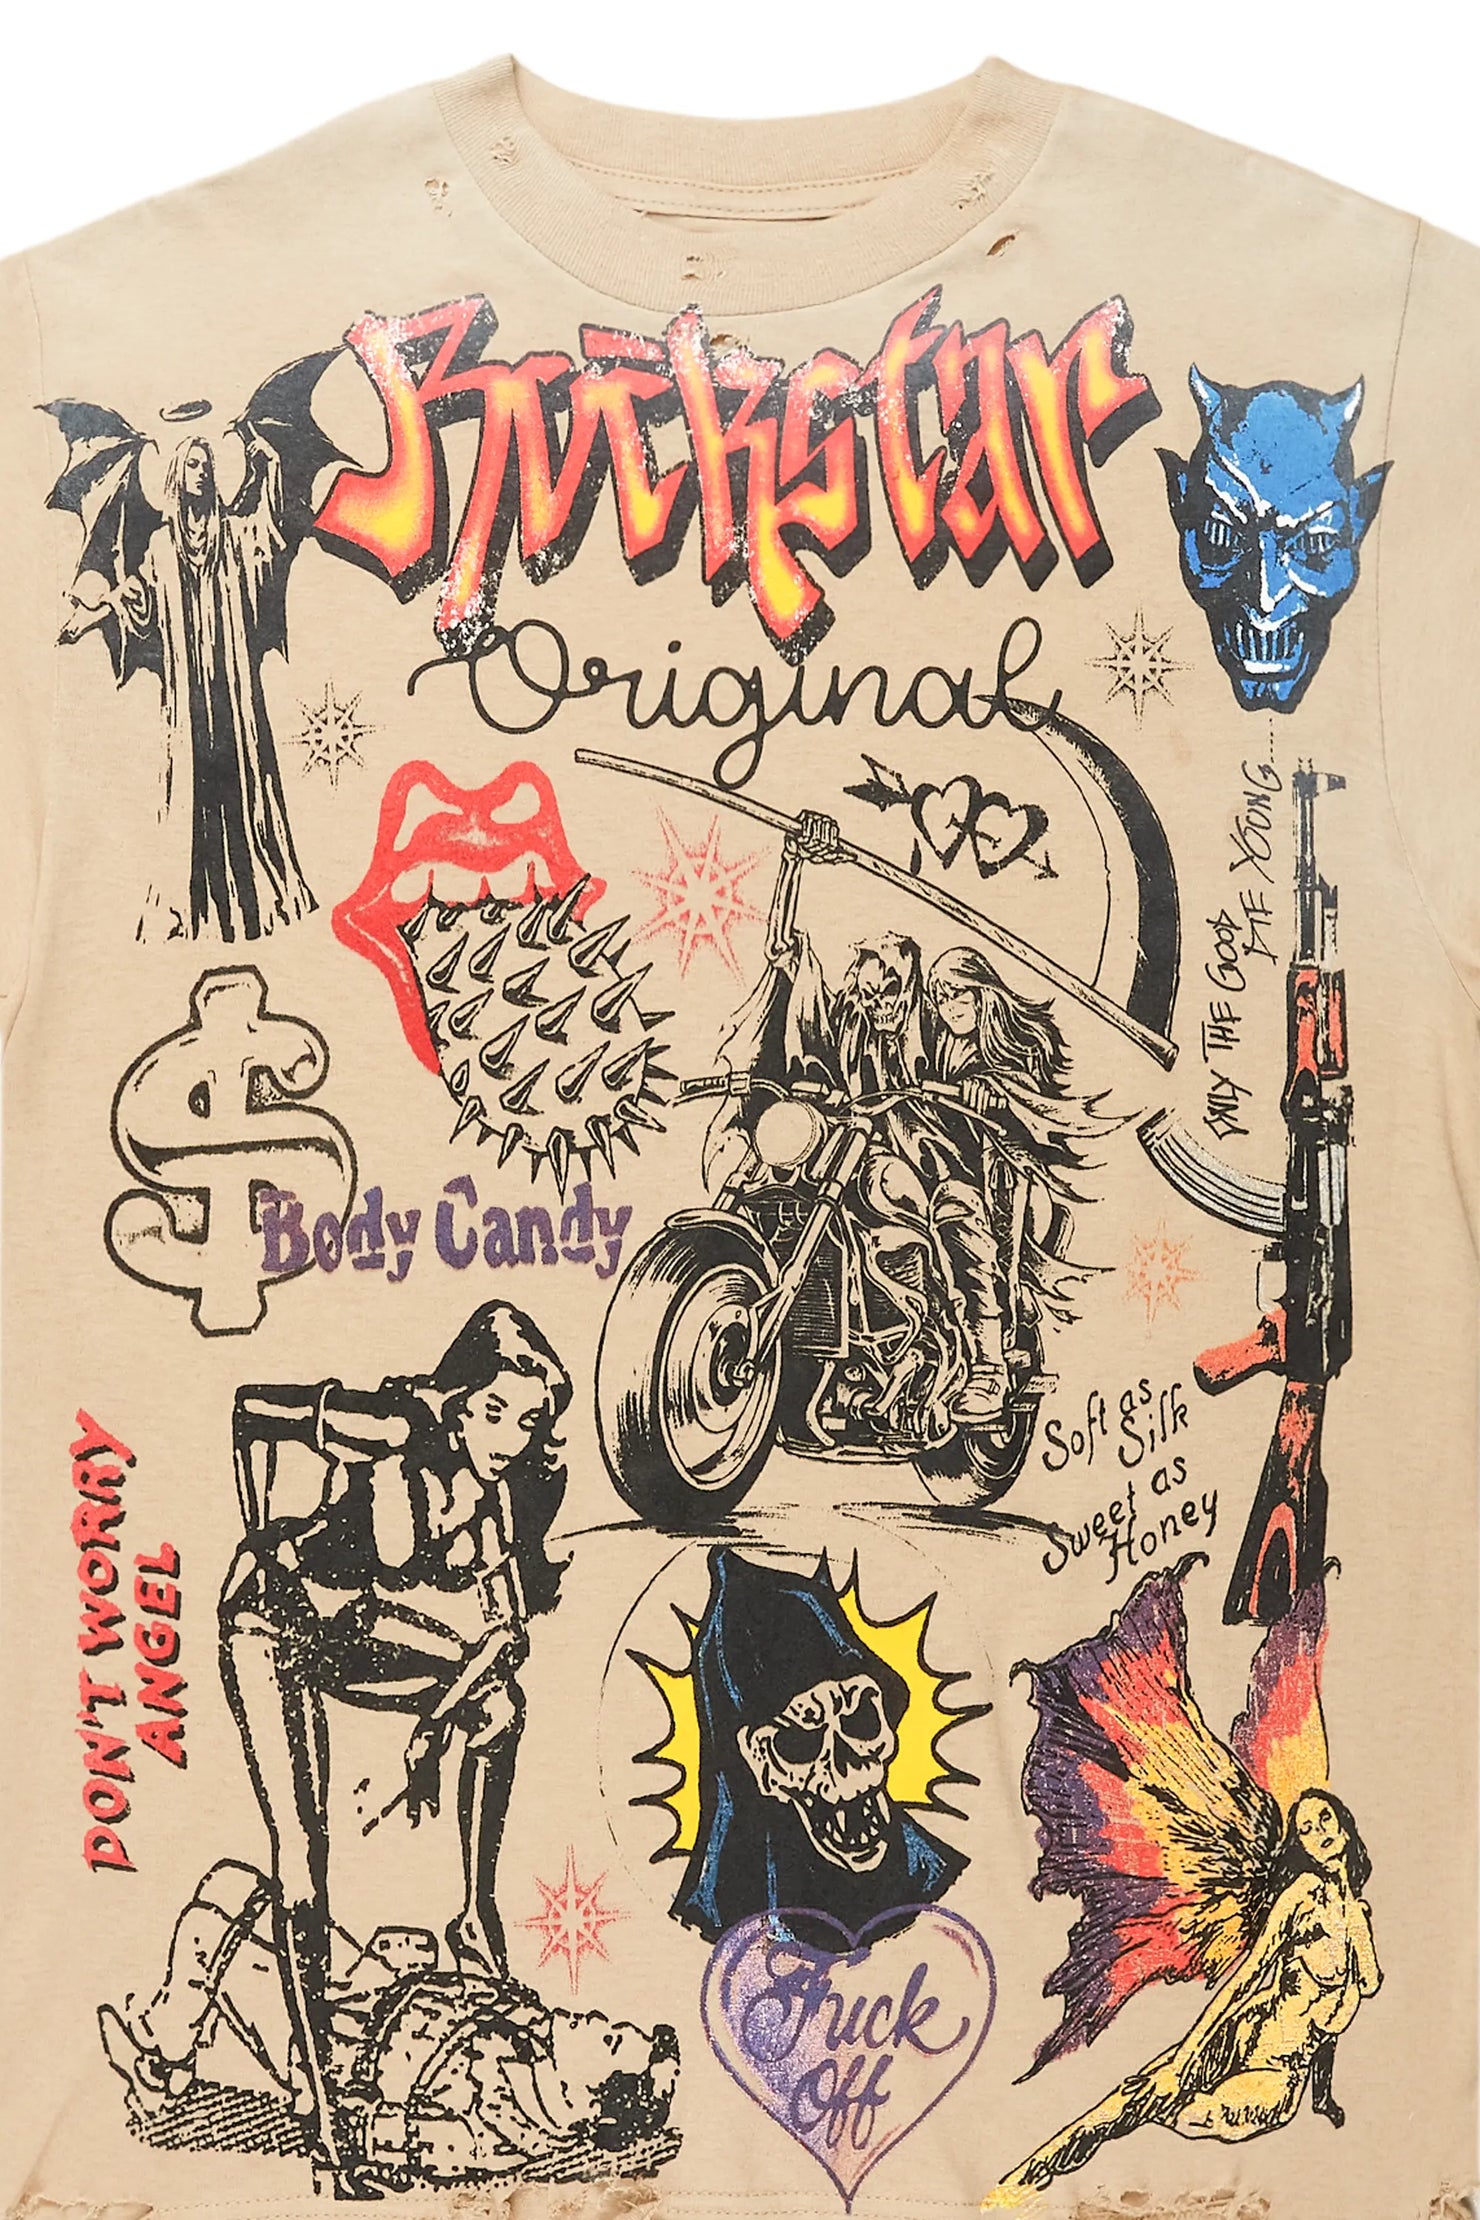 Rockstar
Original
ONLY THE GOOD
DIE YOUNG....
$
Body Candy
Soft as
Silk
Sweet as
Honey
DON'T WORRY
ANGEL
Fuck
Off